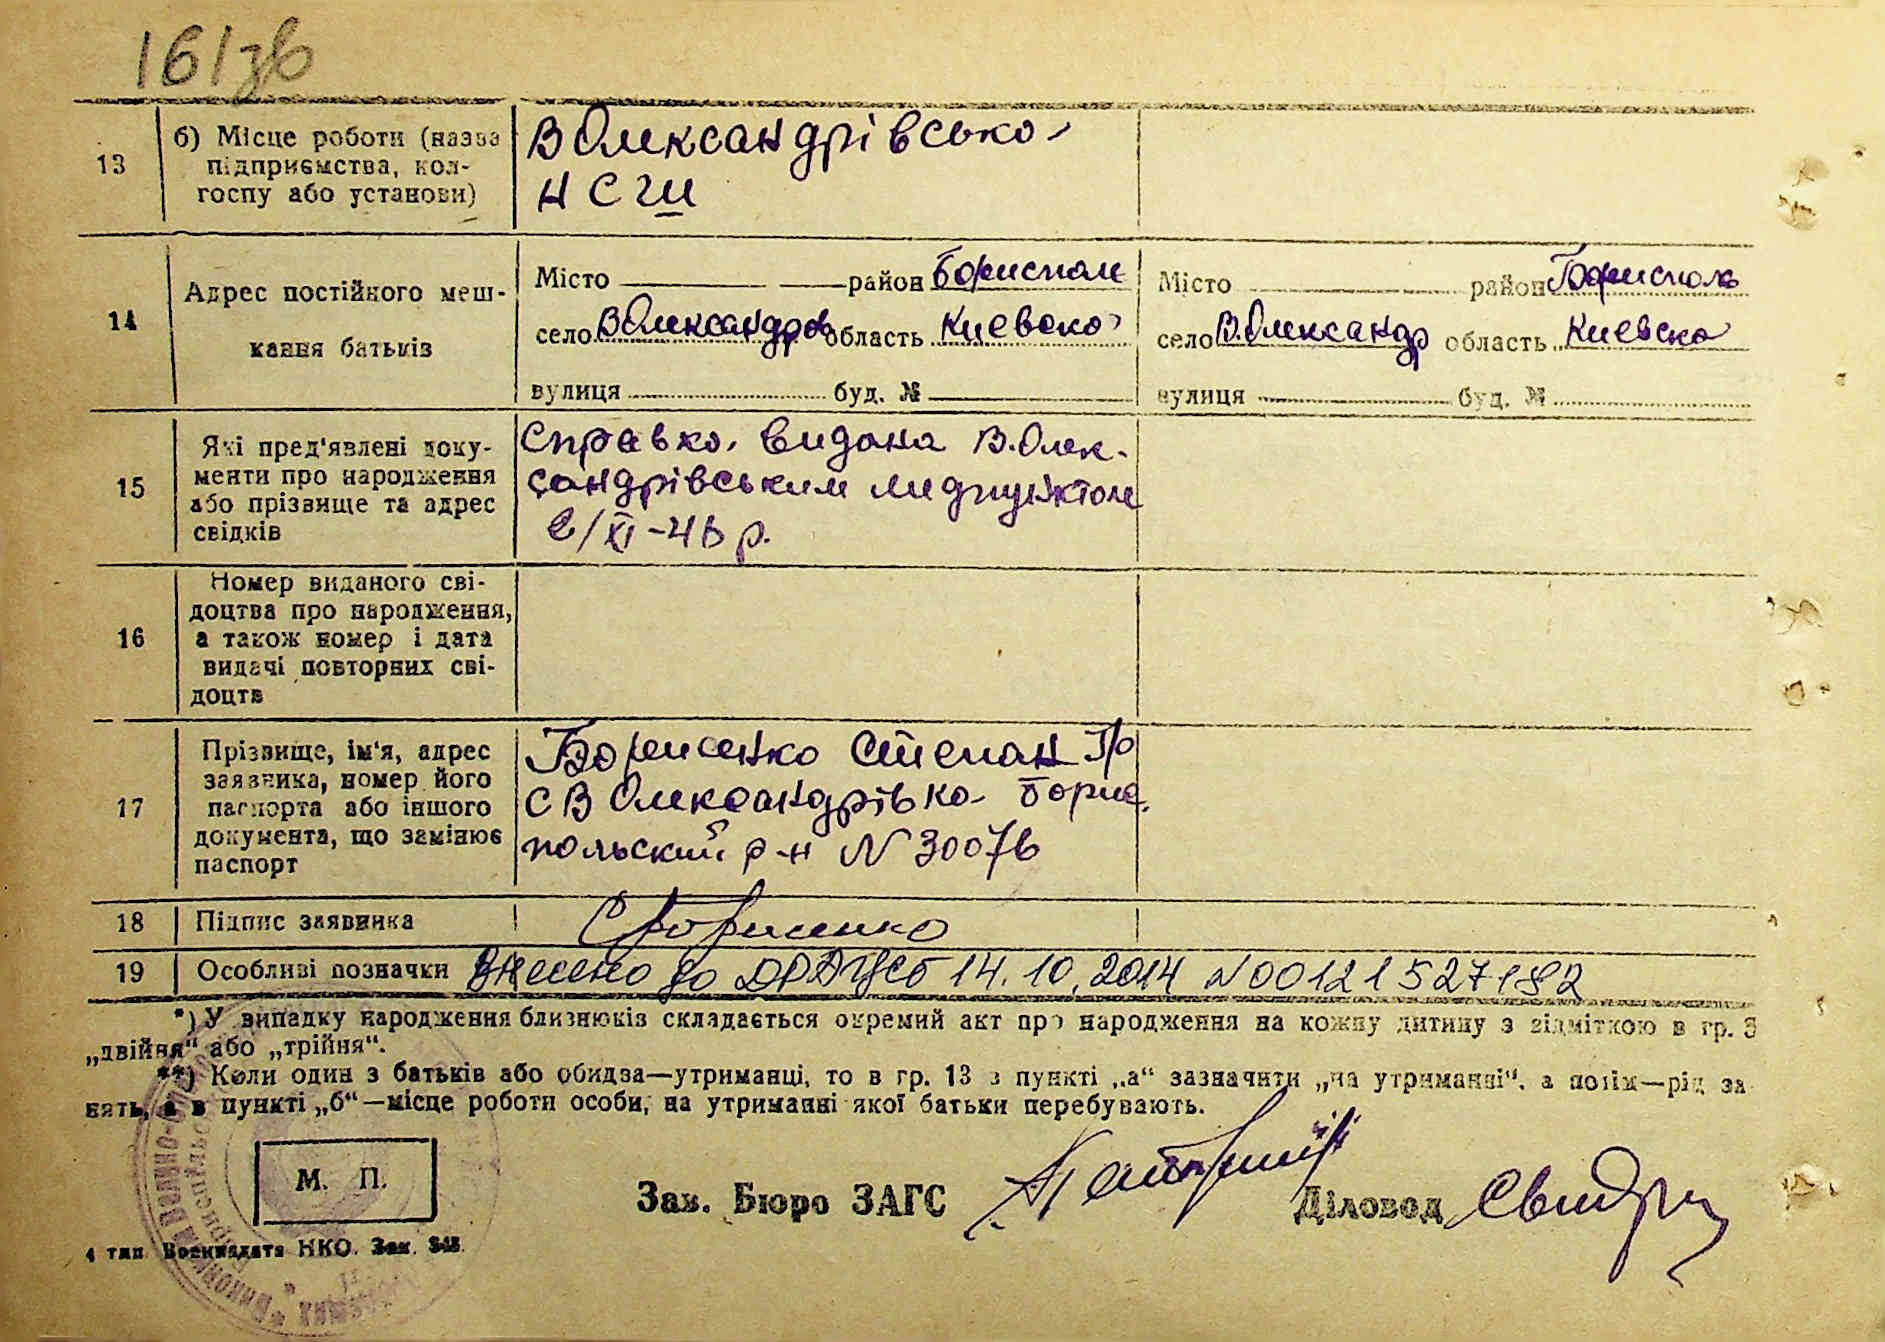 161зв
13
б) Місце роботи (назва
підприємства, кол-
госпу або установи)
В Олександрівсько-
Н С Ш
14
Адрес постійного меш-
кання батьків
Місто район Бориспол
село В Олександров область Киевско
вулиця буд. №
Місто район Бориполь
село В. Олександр область Киевско
вулиця буд. №
15
Які пред'явлені доку-
менти про народження
або прізвище та адрес
свідків
Справка видана В. Олек-
сандрівським медпунктом
2/XI-46 р.
16
Номер виданого сві-
доцтва про народження,
а також номер і дата
видачі повторних сві-
доцтв
17
Прізвище, ім'я, адрес
заявника, номер його
паспорта або іншого
документа, що замінює
паспорт
Борисенко Степан Гр
С В Олександрівка Борис
польский р-н N 30076
18
Підпис заявника
С Борисенко
19
Особливі позначки
Внесено до ДРАЦСГ 14.10.2014 N 00121527182
*) У випадку народження близнюків складається окремий акт про народження на кожну дитину з відміткою в гр. 3
„двійня“ або „трійня“.
**) Коли один з батьків або обидва—утриманці, то в гр. 13 в пункті „а“ зазначити „на утриманні“, а потім—рід за
нять, а в пункті „б“—місце роботи особи, на утриманні якої батьки перебувають.
М. П.
Зав. Бюро ЗАГС
Діловод
4 тип Воениздата НКО. Зак. 348.